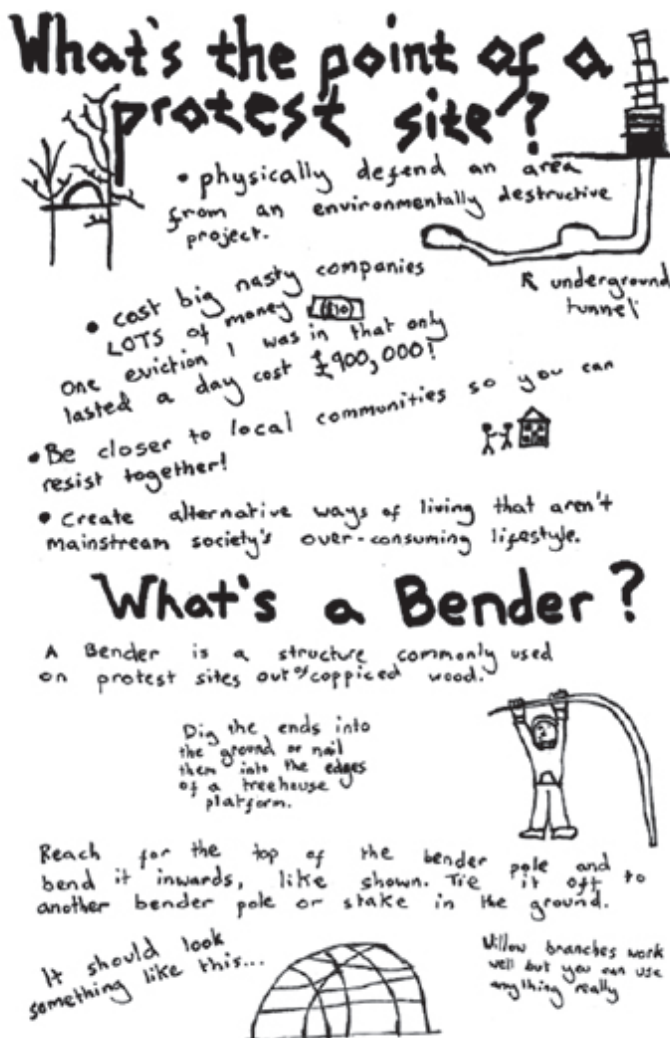 What's the point of a
protest site?
• physically defend an area
from an environmentally destructive
project.
underground
tunnel
• cost big nasty companies
LOTS of money £10
One eviction I was in that only
lasted a day cost £900,000!
• Be closer to local communities so you can
resist together!
• Create alternative ways of living that aren't
mainstream society's over-consuming lifestyle.
What's a Bender?
A Bender is a structure commonly used
on protest sites out of coppiced wood.
Dig the ends into
the ground or nail
them into the edges
of a treehouse
platform.
Reach for the top of the bender pole and
bend it inwards, like shown. Tie it off to
another bender pole or stake in the ground.
It should look
something like this...
Willow branches work
well but you can use
anything really